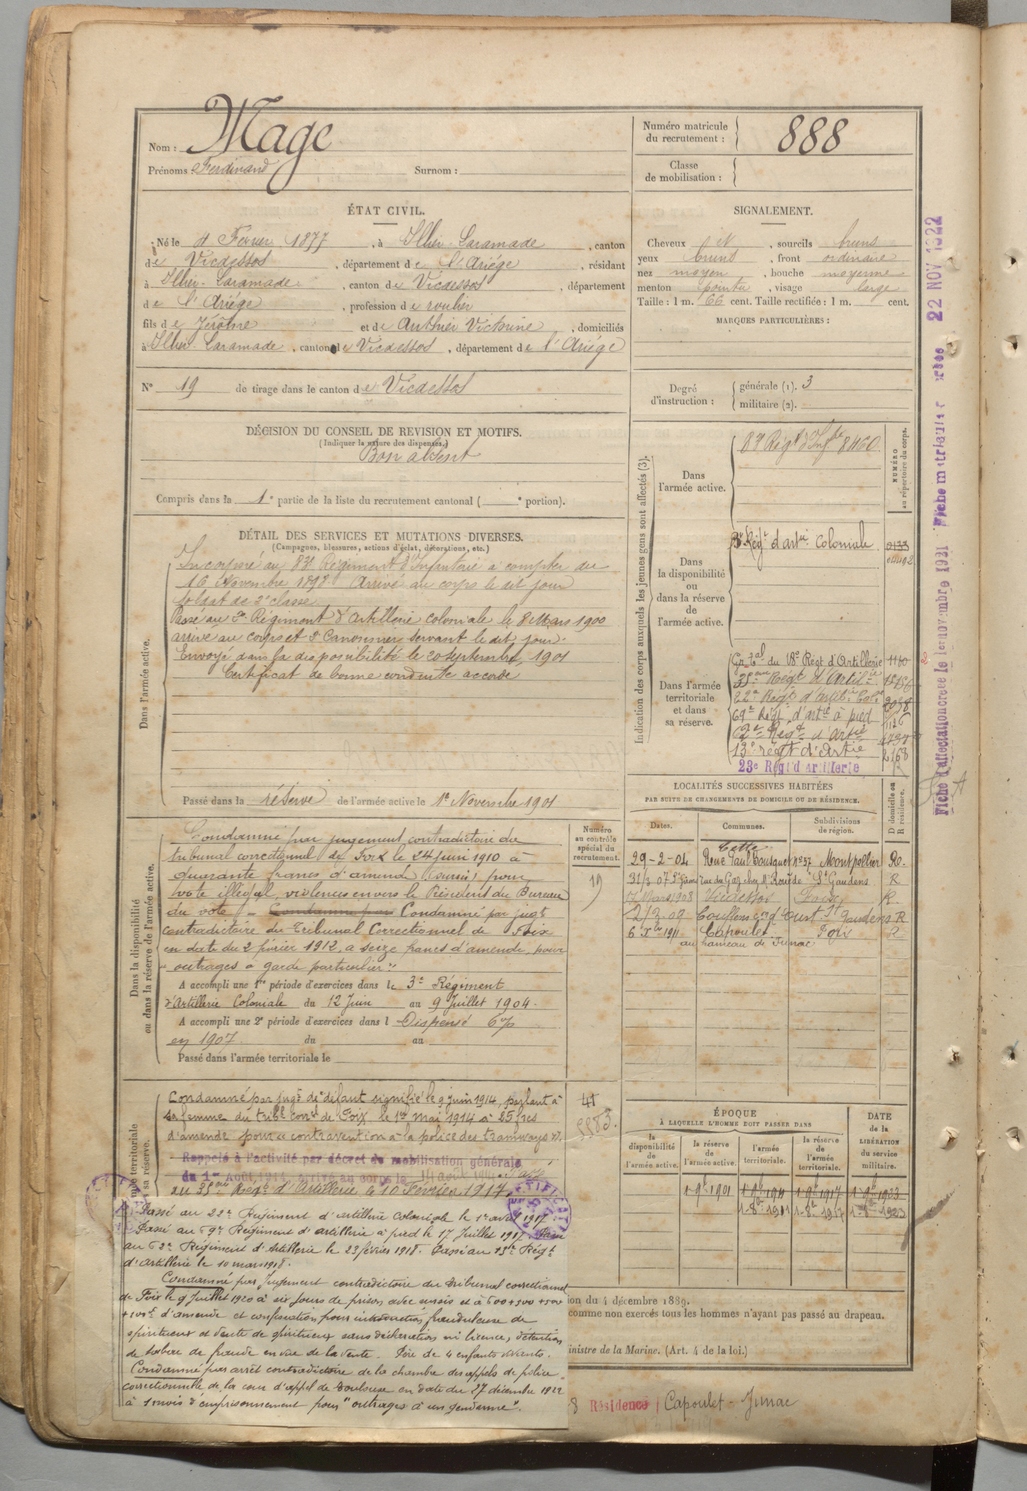 Nom : Mage
Prénoms : Ferdinand Surnom :
Numéro matricule du recrutement : 888
Classe de mobilisation :
ÉTAT CIVIL.
Né le 4 Février 1877, à Illier-Laramade, canton
de Vicdessos, département de l'Ariége, résidant
à Illier-Laramade, canton de Vicdessos, département
de l'Ariége, profession de roulier
fils de Jérôme et de Authier Victorine, domiciliés
à Illier Laramade, canton de Vicdessos, département de l'Ariége
N° 19 de tirage dans le canton de Vicdessos
SIGNALEMENT.
Cheveux N, sourcils bruns
yeux bruns, front ordinaire
nez moyen, bouche moyenne
menton pointu, visage large
Taille : 1 m. 66 cent. Taille rectifiée : 1 m. cent.
MARQUES PARTICULIÈRES :
Degré d'instruction : générale (1). 3
militaire (2).
DÉCISION DU CONSEIL DE REVISION ET MOTIFS.
(Indiquer la nature des dispenses.)
Bon absent
Compris dans la 1e partie de la liste du recrutement cantonal ( e portion).
DÉTAIL DES SERVICES ET MUTATIONS DIVERSES.
(Campagnes, blessures, actions d'éclat, décorations, etc.)
Dans l'armée active.
Incorporé au 83e Régiment d'Infanterie à compter du
16 Novembre 1898 Arrivé au corps le dit jour
Soldat de 2e classe
Passé au 3e Régiment d'Artillerie coloniale le 8 Mars 1900
arrivé au corps et 2e Canonnier servant le dit jour.
Envoyé dans la disponibilité le 20 septembre 1901
Certificat de bonne conduite accordé
Passé dans la réserve de l'armée active le 1er Novembre 1901
Indication des corps auxquels les jeunes gens sont affectés (3).
NUMÉRO au répertoire du corps.
Dans l'armée active.
83 Régt d'Infie 8460
Dans la disponibilité ou dans la réserve de l'armée active.
3e Régt d'artie Coloniale
Dans l'armée territoriale et dans sa réserve.
du 18e Régt d'Artillerie 1140
35ème Régt d'Artillie
22e Régt d'Artie Cole
69e Régt d'artie à pied
62e Régt d'Artie
13e régt d'Artie 2168
23e Régt d'Artillerie
LOCALITÉS SUCCESSIVES HABITÉES
PAR SUITE DE CHANGEMENTS DE DOMICILE OU DE RÉSIDENCE.
Dates. Communes. Subdivisions de région. D domicile ou R résidence.
Cette
29-2-04 Rue Paul Bousquet n° 37 Montpellier Ro.
rue du Gaz chez Mr St Gaudens R
Mars 1908 Vicdessos Foix R.
2/3 09 St Gaudens R
6 Xbre 1911 Capoulet Foix R
au hameau de Junac
Dans la disponibilité ou dans la réserve de l'armée active.
Numéro au contrôle spécial du recrutement.
19
Condamné par jugement contradictoire du
tribunal correctionnel de Foix le 24 juin 1910 à
quarante francs d'amende (sursis) pour
vote illégal, violences envers le Président du Bureau
de vote. Condamné par jugt
contradictoire du tribunal Correctionnel de Foix
en date du 2 février 1912, à seize francs d'amende, pour
"outrages à garde particulier"
A accompli une 1re période d'exercices dans le 3e Régiment
d'Artillerie Coloniale du 12 Juin au 9 Juillet 1904.
A accompli une 2e période d'exercices dans l Dispensé
en 1907 du au
Passé dans l'armée territoriale le
Condamné par jugt de défaut signifié le 9 juin 1914, parlant à
sa femme du tribl corrl de Foix le 1er mai 1914 à 25 frcs
d'amende pour "contravention à la police des tramways".
Rappelé à l'activité par décret de mobilisation générale
du 1er Août 1914. Arrivé au corps le 14 août 1914. Passé
au 35me Régt d'Artillerie le 10 Février 1917.
Passé au 22e Régiment d'artillerie coloniale le 1er avril 1917
Passé au 69e Régiment d'artillerie à pied le 17 Juillet 1917. Passé
au 62e Régiment d'Artillerie le 23 février 1918. Passé au 13e Régt
d'Artillerie le 10 mars 1918.
Condamné par Jugement contradictoire du tribunal correctionnel
de Foix le 9 juillet 1920 à six jours de prison avec sursis et à 500 + 500 + 500
+ 100f d'amende et confiscation, pour introduction frauduleuse de
spiritueux et vente de spiritueux sans déclaration ni licence, détention
de tabac de fraude en vue de la vente. Père de 4 enfants vivants.
Condamné par arrêt contradictoire de la chambre des appels de police
correctionnelle de la cour d'appel de Toulouse en date du 27 décembre 1922
à 1 mois d'emprisonnement pour "outrages à un gendarme".
ÉPOQUE
À LAQUELLE L'HOMME DOIT PASSER DANS
la disponibilité de l'armée active. la réserve de l'armée active. l'armée territoriale. la réserve de l'armée territoriale.
DATE de la LIBÉRATION du service militaire.
1-9b 1901 1-9b 1911 1-9b 1917 1-9b 1923
ion du 4 décembre 1889.
comme non exercés tous les hommes n'ayant pas passé au drapeau.
inistre de la Marine. (Art. 4 de la loi.)
8 Résidence Capoulet-Junac
Fiche d'affectation créée le 1er novembre 1921
22 NOV 1922